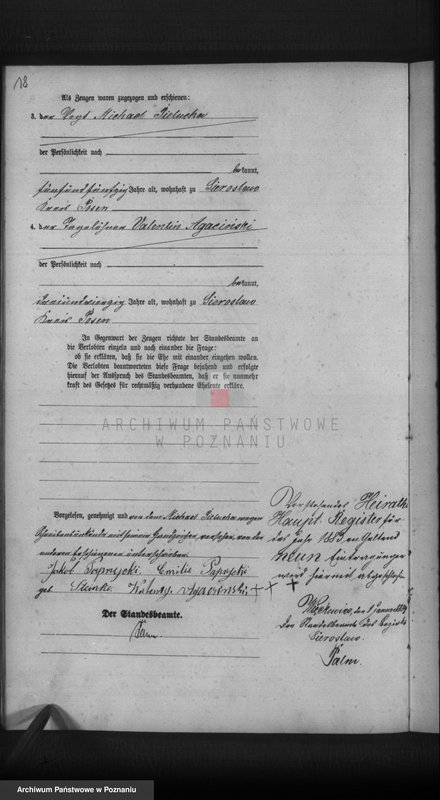 18
Als Zeugen waren zugezogen und erschienen:
3. der Vogt Michael
der Persönlichkeit nach
bekannt,
fünfundfünfzig Jahre alt, wohnhaft zu Sieroslawo
Kreis Posen
4. der Tagelöhner Valentin Agaciński
der Persönlichkeit nach
bekannt,
Jahre alt, wohnhaft zu Sieroslawo
Kreis Posen
In Gegenwart der Zeugen richtete der Standesbeamte an
die Verlobten einzeln und nach einander die Frage:
ob sie erklären, daß sie die Ehe mit einander eingehen wollen.
Die Verlobten beantworteten diese Frage bejahend und erfolgte
hierauf der Ausspruch des Standesbeamten, daß er sie nunmehr
kraft des Gesetzes für rechtmäßig verbundene Eheleute erkläre.
ARCHIWUM PAŃSTWOWE
W POZNANIU
Vorgelesen, genehmigt und von dem Michael wegen
Schreibensunkunde mit seinem Handzeichen versehen, von den
anderen Erschienenen unterschrieben.
Jakob Emilie
geb. +++
Der Standesbeamte.
Palm
Vorstehendes Heiraths
Haupt Register für
das Jahr 1883 enthaltend
neun Eintragungen
wird hiermit abgeschlossen
Der Standesbeamte des Bezirks
Sieroslawo
Palm.
Archiwum Państwowe w Poznaniu